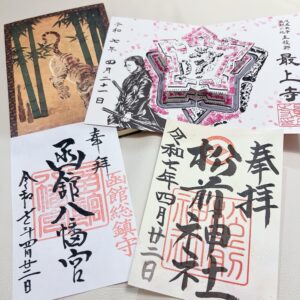 最上寺
令和七年四月二十一日
奉拝
函館八幡宮
函館総鎮守
令和七年四月廿二日
奉拝
松前神社
令和七年四月廿二日